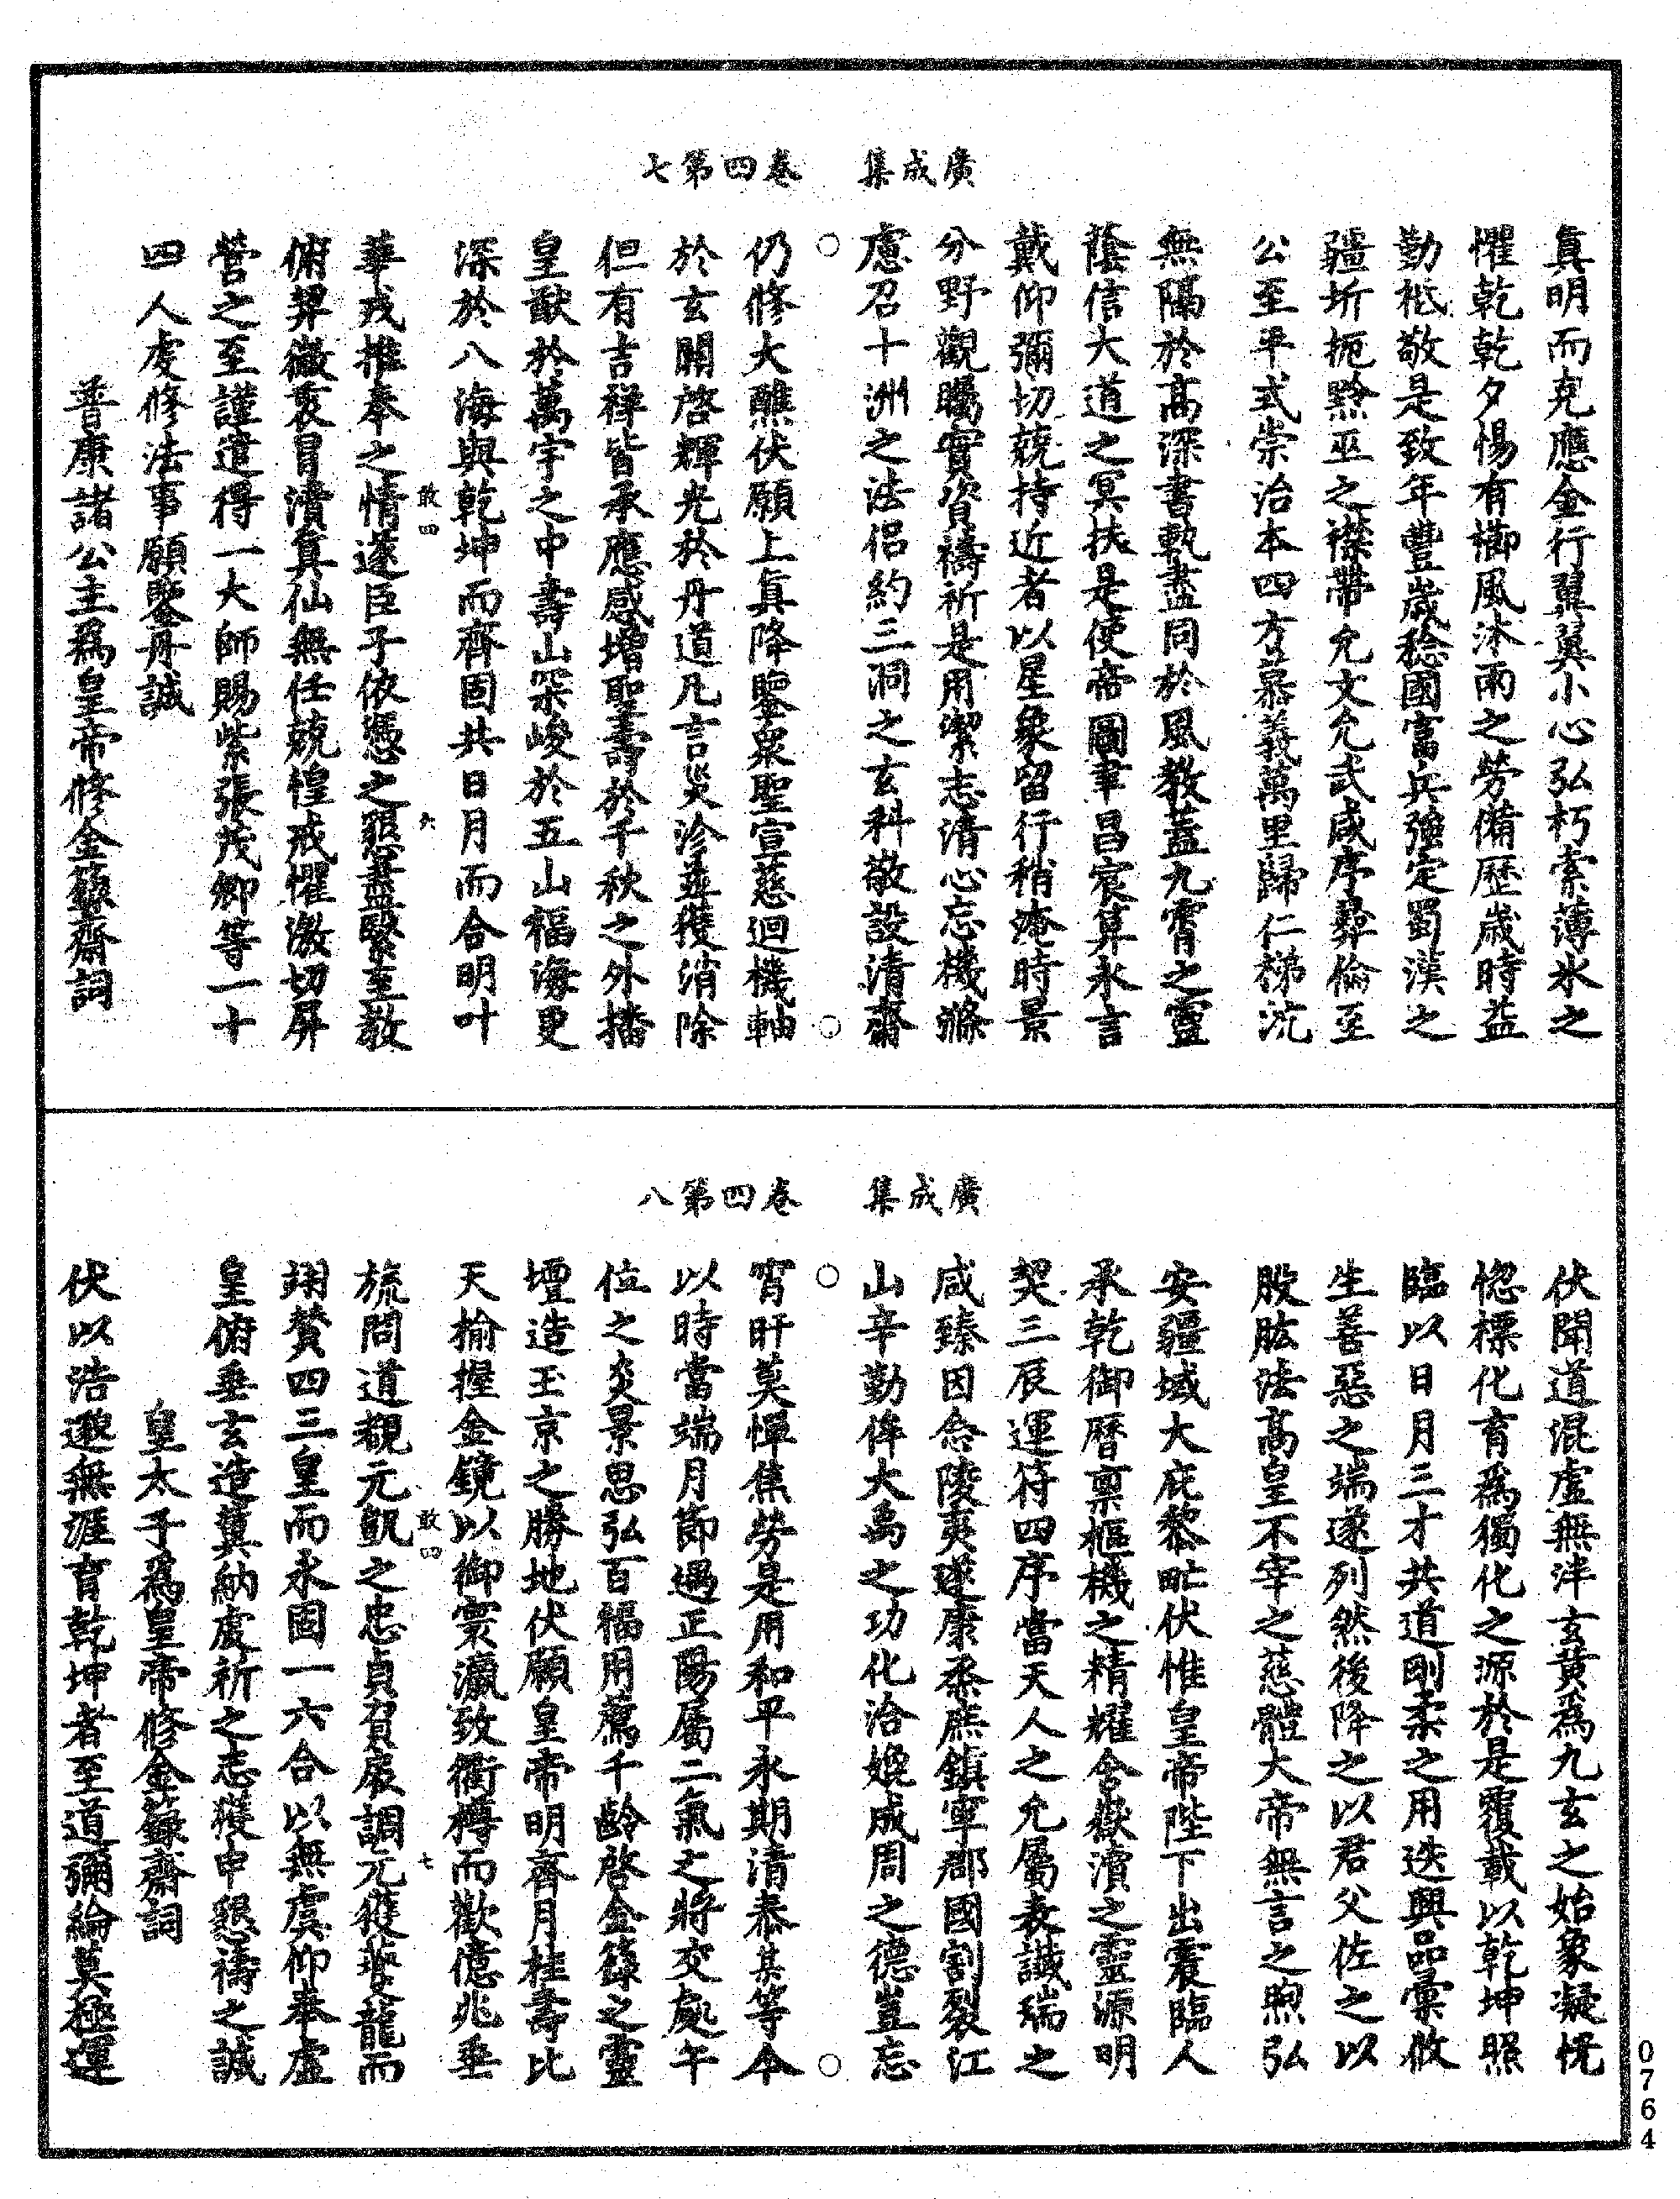 廣成集　卷四第七
真明而克應金行翼翼小心弘朽索薄冰之
懼乾乾夕惕有櫛風沐雨之勞備歷歲時益
勤祗敬是致年豐歲稔國富兵強定蜀漢之
疆圻扼黔巫之襟帶允文允武咸序彝倫至
公至平式崇治本四方慕義萬里歸仁梯沆
無隔於高深書軌盡同於風教蓋九霄之靈
蔭信大道之冥扶是使帝圖聿昌宸算永言
戴仰彌切兢持近者以星象留行稍淹時景
分野觀矚實資禱祈是用潔志清心忘機滌
慮召十洲之法侶約三洞之玄科敬設清齋
仍修大醮伏願上真降鑒衆聖宣慈迴機軸
於玄關啓輝光於丹道凡言災沴並獲消除
但有吉祥皆承應感增聖壽於千秋之外播
皇猷於萬宇之中壽山深峻於五山福海更
深於八海與乾坤而齊固共日月而合明叶
敢四　六
華戎推奉之情遂臣子依憑之懇蓋緊至教
俯羿徽衷冒瀆真仙無任兢惶戒懼激切屏
營之至謹遣得一大師賜紫張茂卿等一十
四人虔修法事願鑒丹誠
普康諸公主爲皇帝修金籙齋詞
廣成集　卷四第八
伏聞道混虛無泮玄黃爲九玄之始象凝恍
惚標化育爲獨化之源於是覆載以乾坤照
臨以日月三才共道剛柔之用迭興品彙攸
生善惡之端遂列然後降之以君父佐之以
股肱法高皇不宰之慈體大帝無言之煦弘
安疆域大庇黎甿伏惟皇帝陛下出震臨人
承乾御曆稟樞機之精耀含嶽瀆之靈源明
契三辰運符四序當天人之允屬表讖瑞之
咸臻因念陵夷遂康柔庶鎮寧郡國割裂江
山辛勤侔大禹之功化洽媲成周之德豈忘
宵旰莫憚焦勞是用和平永期清泰某等今
以時當端月節過正陽屬二氣之將交處午
位之炎景思弘百福用薦千齡啓金籙之靈
壇造玉京之勝地伏願皇帝明齊月桂壽比
天揄握金鏡以御寰瀛致衢樽而歡億兆垂
敢四　七
旒問道覿元凱之忠貞負扆調元獲夔龍而
翊贊四三皇而永固一六合以無虞仰奉虛
皇俯垂玄造冀納虔祈之志獲申懇禱之誠
皇太子爲皇帝修金籙齋詞
伏以浩邈無涯育乾坤者至道彌綸莫極運
0764